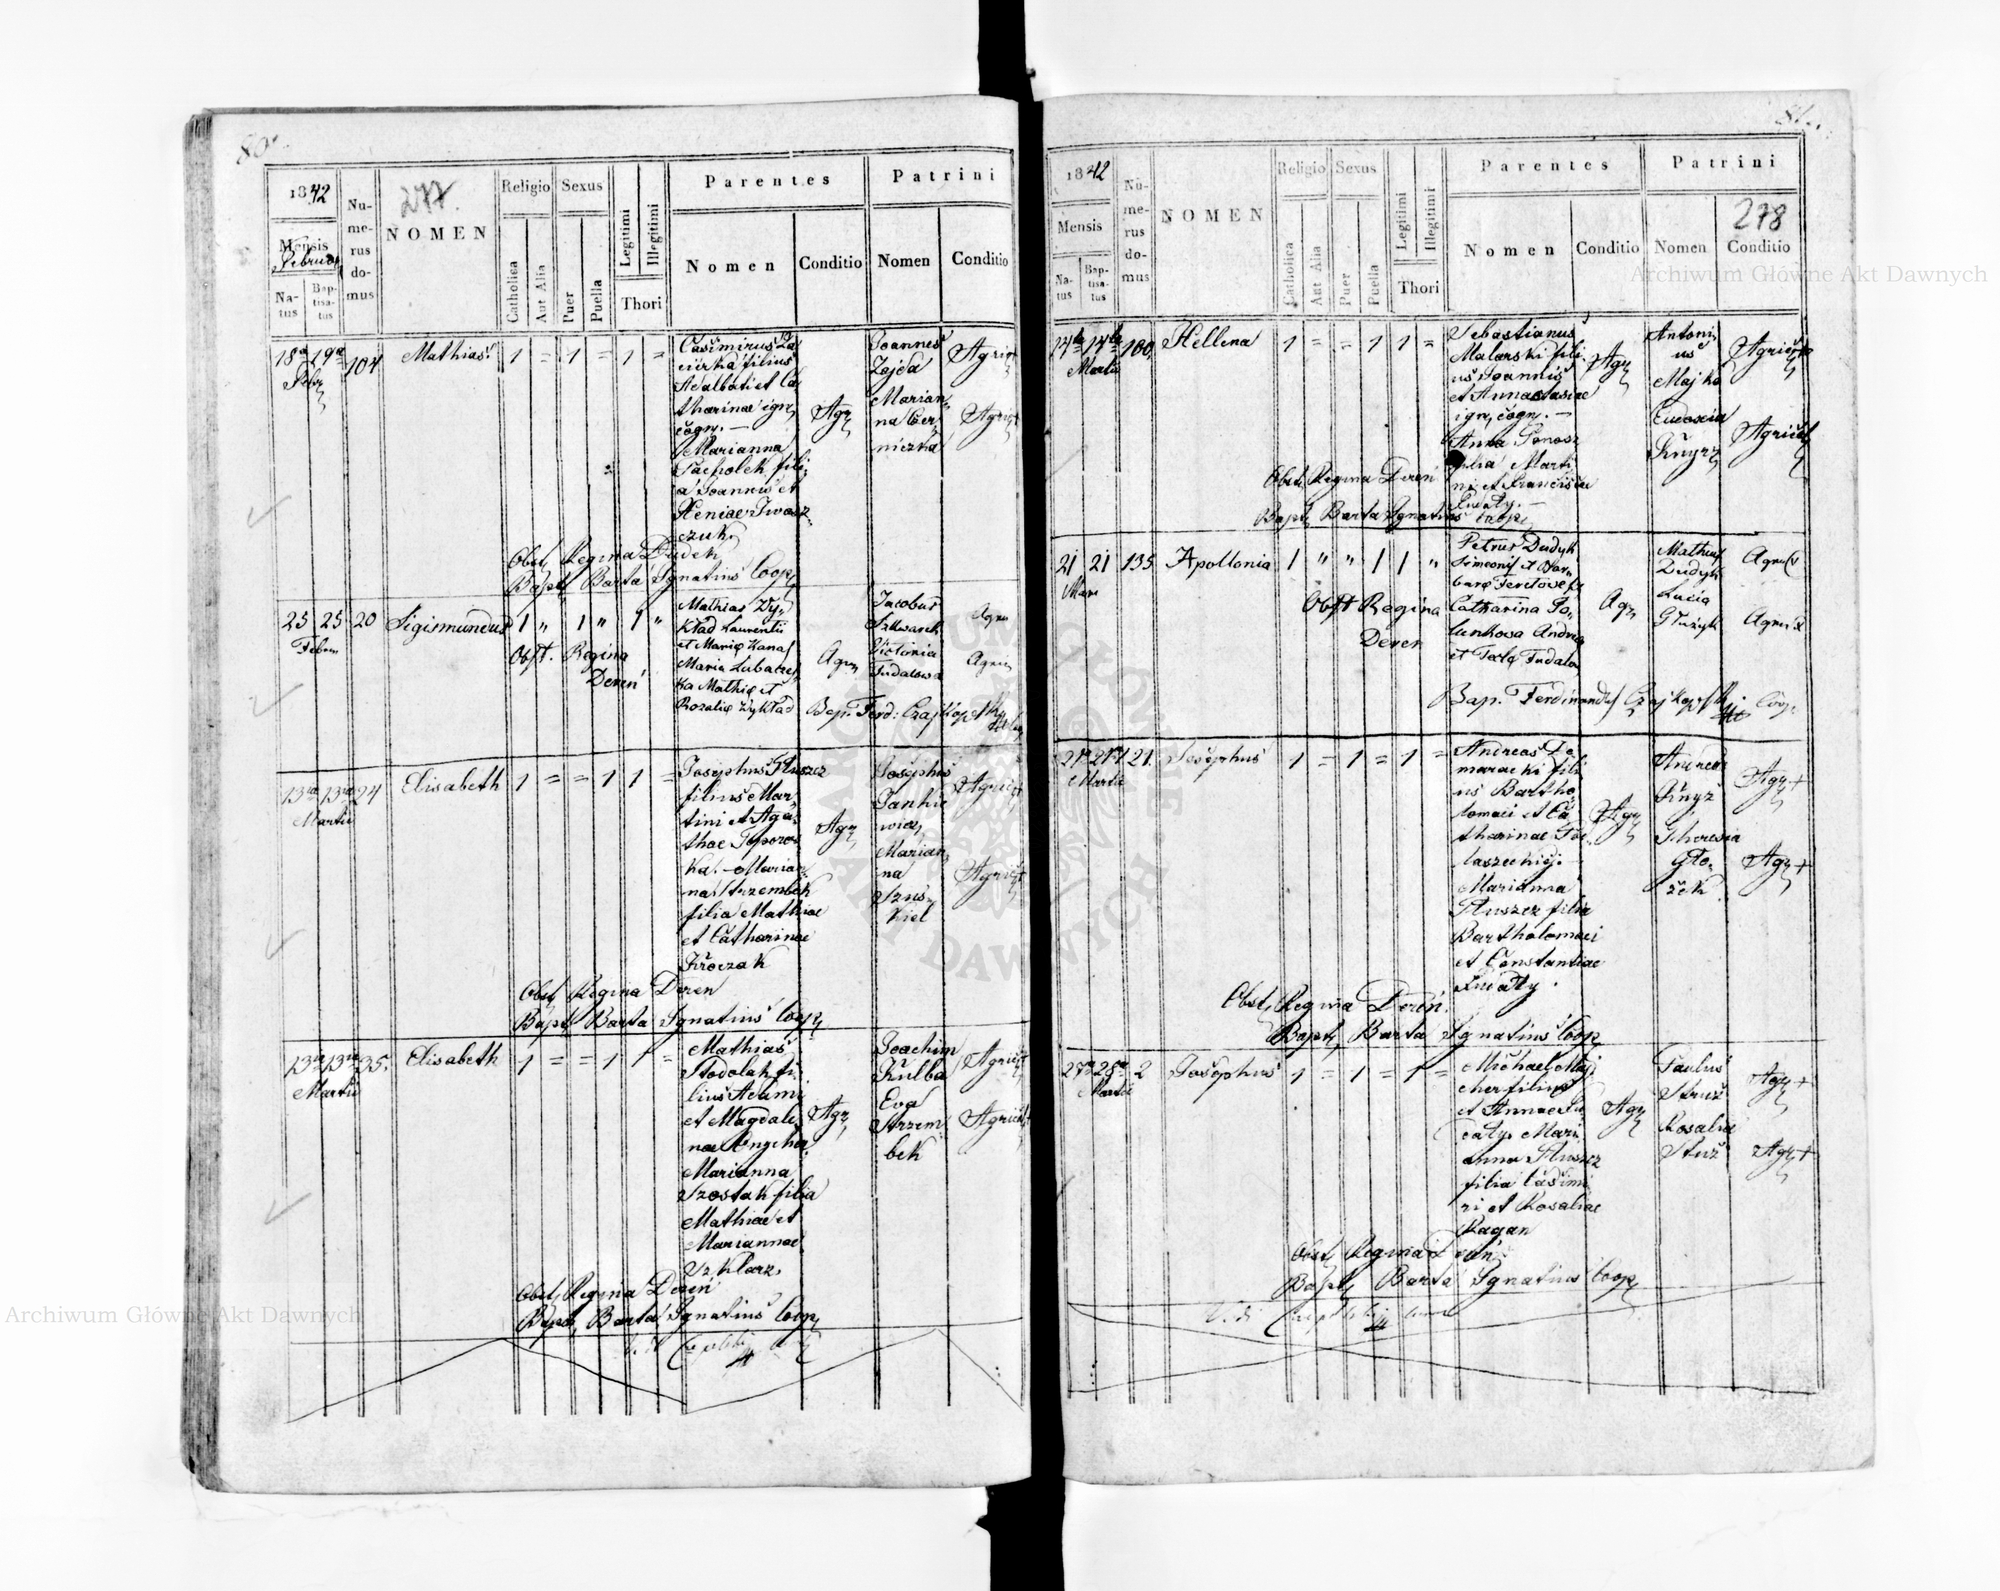 80.
1842
Mensis
Februar
Natus
Baptisatus
Numerus domus
277.
NOMEN
Religio
Catholica
Aut Alia
Sexus
Puer
Puella
Legitimi
Illegitimi
Thori
Parentes
Nomen
Conditio
Patrini
Nomen
Conditio
18a 19a 104 Mathias 1 = 1 = 1 =
Febr
Casimirus
filius
Adalberti et Ca
tharinae
cogn. —
Marianna
Pacholek fili
a Joannis et
Xeniae Iwasz
czuk.
Agr
Joannes
Zojda
Marian
na Czer
niczka
Agric
Agric
Obst. Regina Dudek
Bapt. Barta Ignatius Coop.
25 25 20 Sigismundus 1 " 1 " 1 "
Febru
Mathias Wy
kład Laurentii
et Mariae Kanas
Maria Lubaczes
ka Mathiae et
Rozaliae Wykład
Agr
Jacobus
Szkwarek
Victoria
Fudalowa
Agric
Agric
Obst. Regina
Dereń
Bap. Ferd: Czajkopolski
13tia 13tia 24 Elisabeth 1 = = 1 1 =
Martii
Josephus Tłuszcz
filius Mar
tini et Aga
thae Toporo
ka. – Marian
na Strzembek
filia Mathiae
et Catharinae
Kroczak
Agr
Josephus
Jankie
wicz,
Marian
na
Szus
kiel
Agric
Agric
Obst. Regina Deren
Bapt. Barta Ignatius Coop.
13tia 13tia 35. Elisabeth 1 = = 1 1 =
Martii
Mathias
Stodolak fi
lius Adami
et Magdale
nae
Marianna
Szostak filia
Mathiae et
Mariannae
Szklarz.
Agr
Joachim
Kulba
Eva
Strzem
bek
Agric
Agric
Obst. Regina Dereń
Bapt. Barta Ignatius Coop.
81.
1842
Mensis
Natus
Baptisatus
Numerus domus
NOMEN
Religio
Catholica
Aut Alia
Sexus
Puer
Puella
Legitimi
Illegitimi
Thori
Parentes
Nomen
Conditio
Patrini
278
Nomen
Conditio
14ta 14ta 100 Hellena 1 = = 1 1 =
Martii
Sebastianus
Malarski fili
us Joannis
et Annastasiae
ign, cogn. —
Anna Gonosz
filia Marti
ni et Franciscae
Fudaly. —
Agr
Antoni
us
Majka
Eudoxia
Knyrz
Agric
Agric
Obst. Regina Dereń
Bapt. Barta Ignatius Coop.
21 21 135 Apollonia 1 " " 1 1 "
Mar
Petrus Dudyk
Simeonis et Bar
barae
Catharina Po
lunkowa Andrea
et Teclae Fudala
Agr
Mathias
Dudyk
Lucia
Głuzyk
Agric
Agric
Obst Regina
Deren
Bap. Ferdinandus Czajkopolski Coop.
21 21 121. Josephus 1 = 1 = 1 =
Martii
Andreas Do
maracki fili
us Bartho
lomaei et Ca
tharinae
Marianna
Tłuszcz filia
Bartholomaei
et Constantiae
Fudały.
Agr
Andreas
Knyż
Theresia
Głę
żek
Agr +
Agr +
Obst. Regina Dereń.
Bapt. Barta Ignatius Coop.
27a 28a 2 Josephus 1 = 1 = 1 =
Martii
Michael Maj
cher filius
et Annae Fu
daly. Mari
anna Tłuszcz
filia Casimi
ri et Rosaliae
Ragan
Agr
Paulus
Struś
Rosalia
Struś
Agr +
Agr +
Obst. Regina Dereń
Bapt. Barta Ignatius Coop.
Vidi
Archiwum Główne Akt Dawnych
Archiwum Główne Akt Dawnych
ARCHIWUM GŁÓWNE AKT DAWNYCH